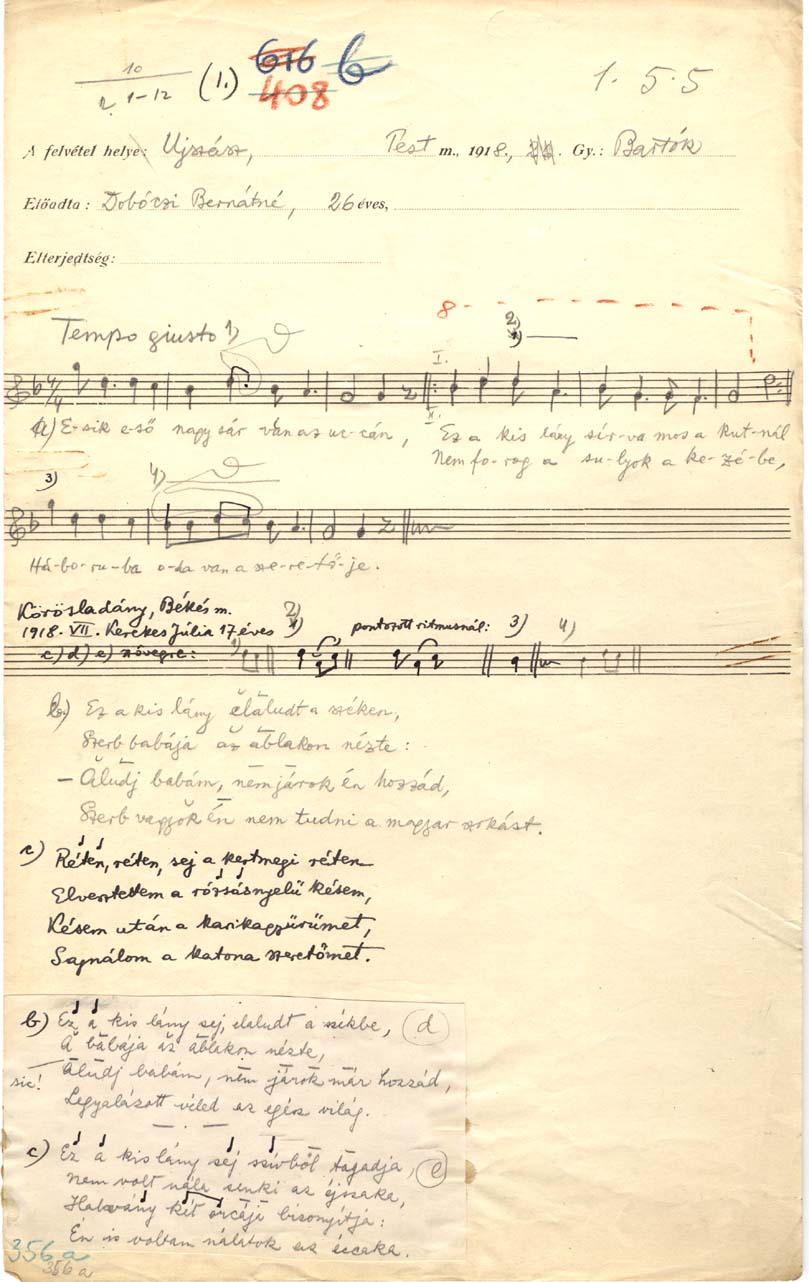 10 (1.) 616 b 1. 5. 5
1-12 408
A felvétel helye: Ujszász, Pest m., 1918., Gy.: Bartók
Előadta: Dobóczi Bernátné, 26 éves,
Elterjedtség:
8
Tempo giusto 1) 2)
I.
4/4
II.
a) E-sik e-ső nagy sár van az uc-cán, Ez a kis lány sír-va mos a kut-nál
Nem fo-rog a su-lyok a ke-zé-be,
3) 4)
Há-bo-ru-ba o-da van a sze-re-tő-je.
Körösladány, Békés m. 2)
1918. VII. Kerekes Júlia 17 éves pontozott ritmusnál: 3) 4)
c) d) e) szövegre:
b.) Ez a kis lány elaludt a széken,
Szerb babája az ablakon nézte:
– Aludj babám, nem járok én hozzád,
Szerb vagyok én nem tudni a magyar szokást.
c) Réten, réten, sej a kertmegi réten
Elvesztettem a rózsásnyelű késem,
Késem után a karikagyűrűmet,
Sajnálom a katona szeretőmet.
b) Ez a kis lány sej, elaludt a székbe, d
A babája az ablakon nézte,
sic! Aludj babám, nem járok már hozzád,
Legyalázott véled az egész világ.
c) Ez a kis lány sej szívből tagadja, e
Nem volt nála senki az éjszaka,
Halvány két orcáji bisonyítja:
Én is voltam nálatok az éccaka.
356 a
356 a